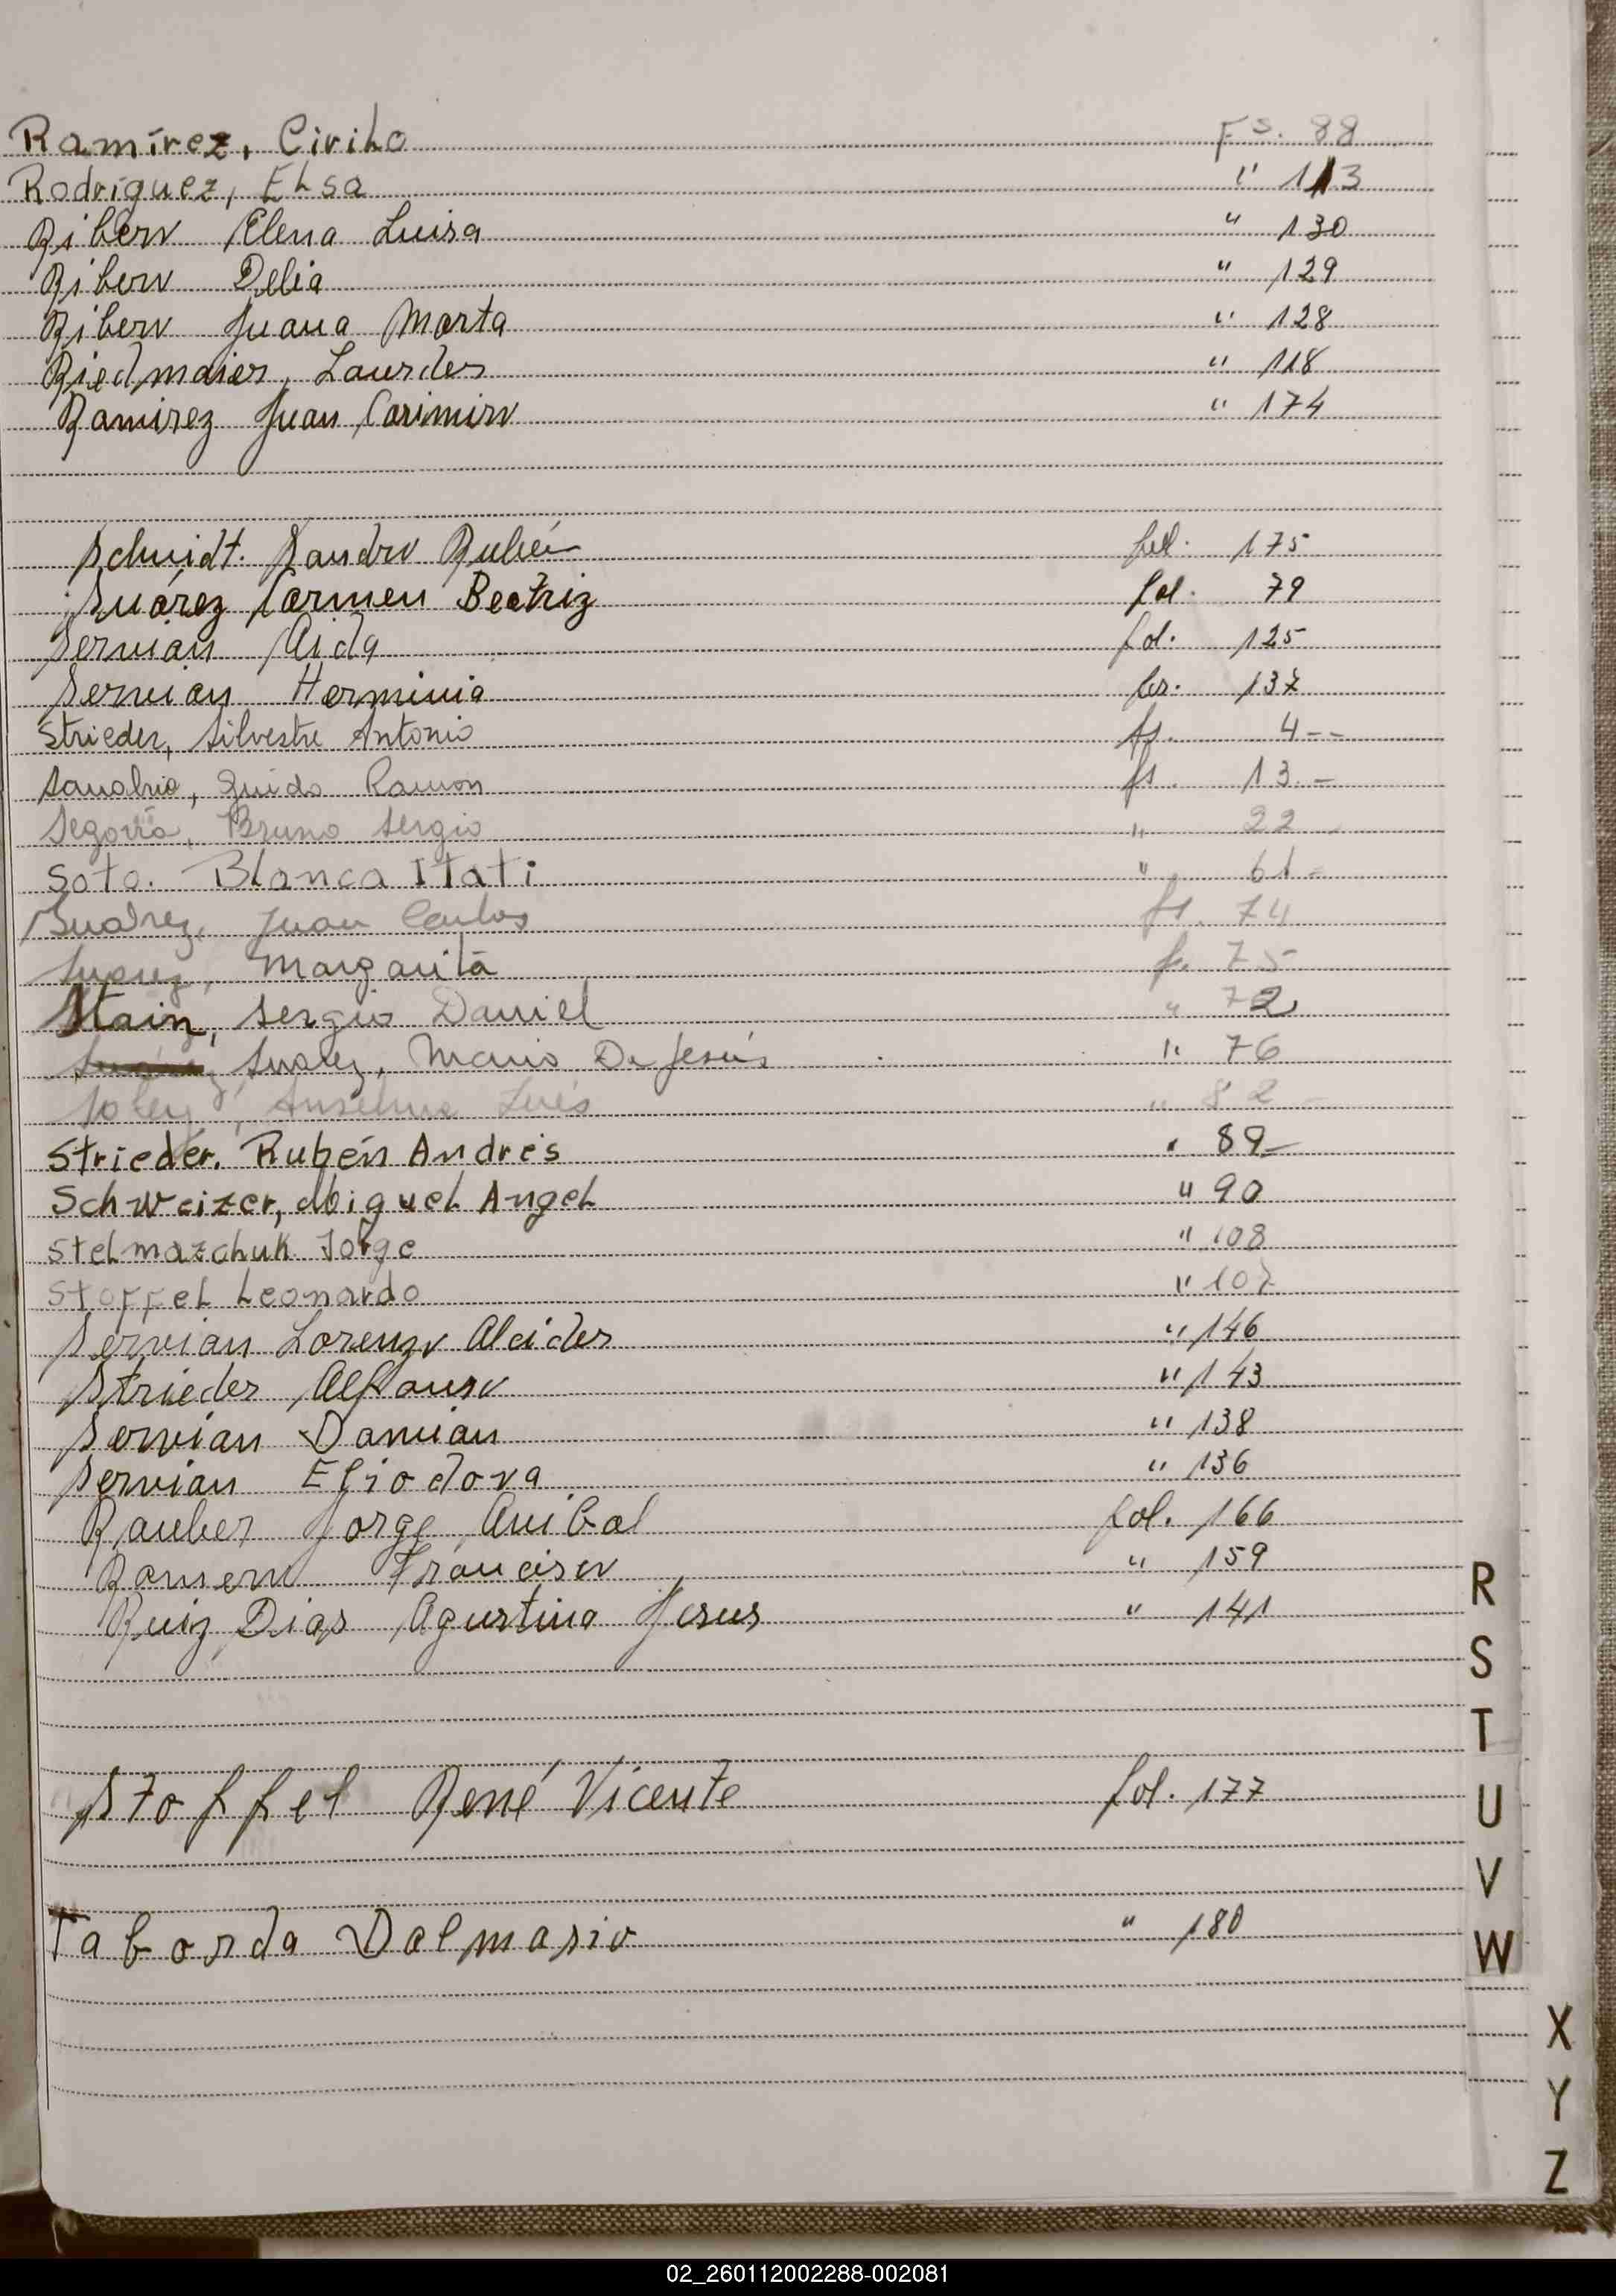 Ramírez, Cirilo Fs. 88
Rodríguez, Elsa " 113
Ribero Elena Luisa " 130
Ribero Delia " 129
Ribero Juana Marta " 128
Riedmaier, Lourdes " 118
Ramirez Juan Casimiro " 174
Schmidt. Sandro Rubén fol. 175
Suárez Carmen Beatriz fol. 79
Servián Aida fol. 125
Servian Herminia fs. 137
Strieder, Silvestre Antonio fs. 4--
Sanabria, Guido Ramon fs. 13.-
Segovia, Bruno Sergio " 22
Soto. Blanca Itati " 61=
Suárez, Juan Carlos fs. 74
Suarez, Margarita f. 75
Stain, Sergio Daniel " 72
Suarez, Mario De Jesús " 76
Anselmo Luis " 82
Strieder. Rubén Andrés " 89=
Schweizer, Miguel Angel " 90
Stelmazchuk Jorge " 108
Stoffel Leonardo " 107
Servian Lorenzo Alcides " 146
Strieder Alfonso " 143
Servián Damián " 138
Servian Eliodora " 136
Rauber Jorge Anibal fol. 166
Romero Francisco " 159
Ruiz Dias Agustina Jesus " 141
Stoffel René Vicente fol. 177
Taborda Dalmasio " 180
R
S
T
U
V
W
X
Y
Z
02_260112002288-002081